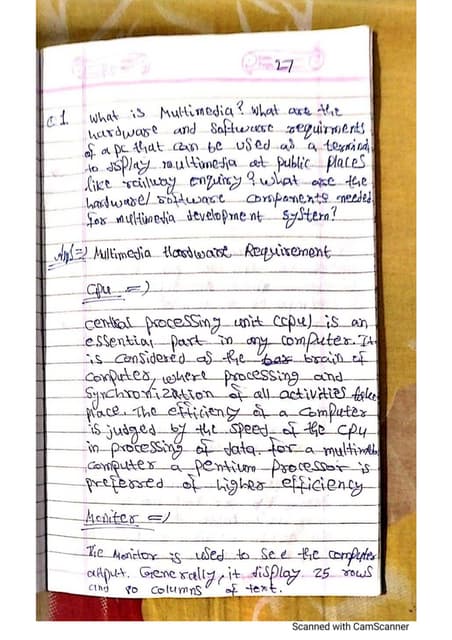 27
Q1 What is Multimedia? What are the
hardware and Software requirments
of a pc that can be used as a terminal
to display multimedia at public places
like railway enquiry? What are the
hardware/software components needed
for multimedia development system?
Ans=) Multimedia Hardware Requirement
CPU =)
central processing unit (cpu) is an
essential part in any computer. It
is considered as the brain of
Computer, where processing and
Synchronization of all activities take
place. The efficiency of a computer
is judged by the speed of the CPU
in processing of data. for a multimedia
Computer a pentium Processor is
preferred of higher efficiency
Moniter =)
The Monitor is used to see the computer
output. Generally, it display 25 rows
and 80 columns of text.
Scanned with CamScanner